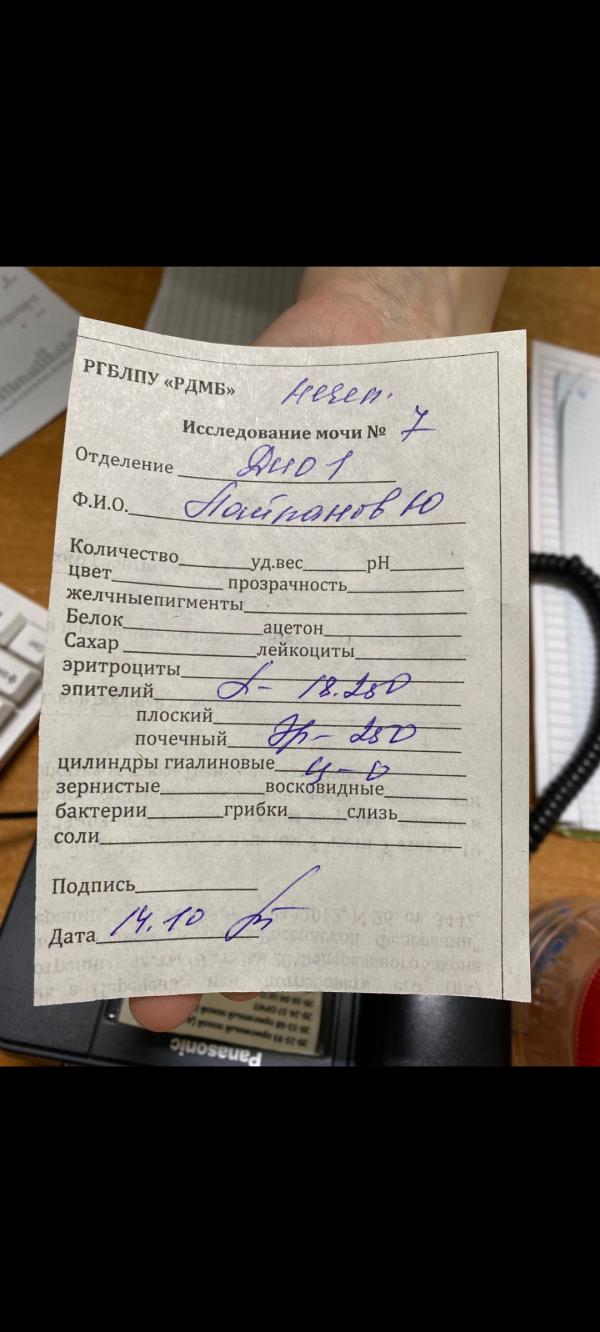 РГБЛПУ «РДМБ»
Нечеп.
Исследование мочи № 7
Отделение ДИО 1
Ф.И.О. Пайпанов Ю
Количество уд.вес рН
цвет прозрачность
желчныепигменты
Белок ацетон
Сахар лейкоциты
эритроциты
эпителий L- 18.250
плоский
почечный Эр- 250
цилиндры гиалиновые Ц-0
зернистые восковидные
бактерии грибки слизь
соли
Подпись
Дата 14.10
Panasonic